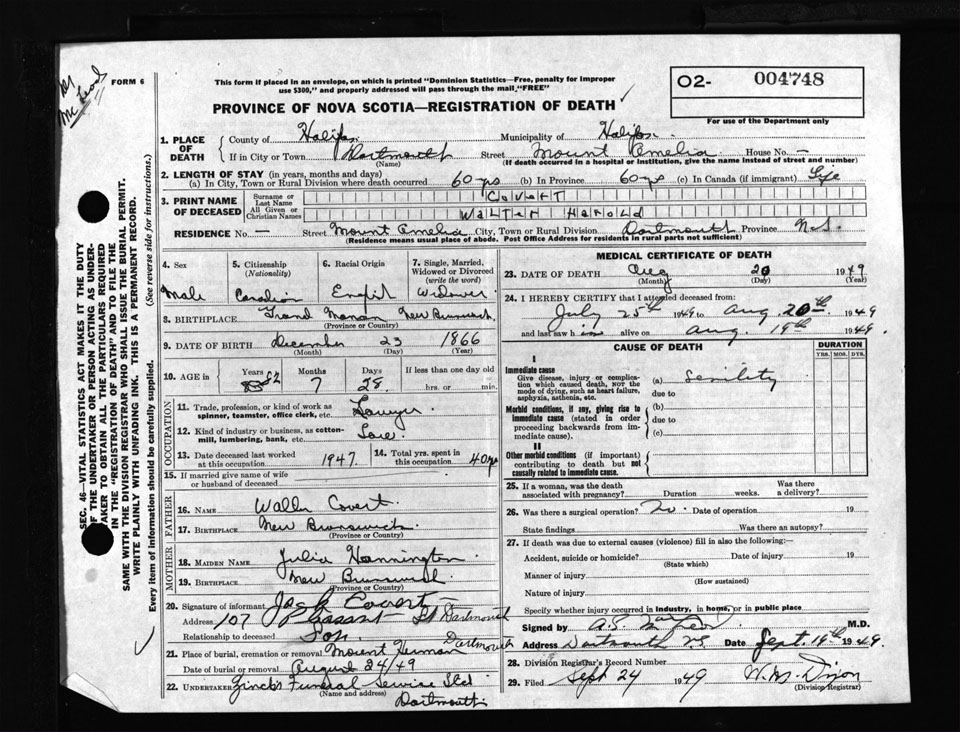 Mr McLeod
FORM 6
This form if placed in an envelope, on which is printed "Dominion Statistics—Free, penalty for improper
use $300," and properly addressed will pass through the mail, "FREE"
PROVINCE OF NOVA SCOTIA—REGISTRATION OF DEATH
O2- 004748
For use of the Department only
SEC. 46—VITAL STATISTICS ACT MAKES IT THE DUTY
OF THE UNDERTAKER OR PERSON ACTING AS UNDER-
TAKER TO OBTAIN ALL THE PARTICULARS REQUIRED
IN THE "REGISTRATION OF DEATH" AND TO FILE THE
SAME WITH THE DIVISION REGISTRAR WHO SHALL ISSUE THE BURIAL PERMIT.
WRITE PLAINLY WITH UNFADING INK. THIS IS A PERMANENT RECORD.
Every item of information should be carefully supplied. (See reverse side for instructions.)
1. PLACE OF DEATH
County of Halifax Municipality of Halifax
If in City or Town Dartmouth Street Mount Amelia House No. —
(Name) (If death occurred in a hospital or institution, give the name instead of street and number)
2. LENGTH OF STAY (in years, months and days)
(a) In City, Town or Rural Division where death occurred 60 yrs (b) In Province 60 yrs (c) In Canada (if immigrant) Life
3. PRINT NAME OF DECEASED
Surname or Last Name COVERT
All Given or Christian Names WALTER HAROLD
RESIDENCE No. — Street Mount Amelia City, Town or Rural Division Dartmouth Province N.S.
(Residence means usual place of abode. Post Office Address for residents in rural parts not sufficient)
4. Sex Male
5. Citizenship (Nationality) Canadian
6. Racial Origin English
7. Single, Married, Widowed or Divorced (write the word) Widower
8. BIRTHPLACE Grand Manan New Brunswick
(Province or Country)
9. DATE OF BIRTH December 23 1866
(Month) (Day) (Year)
10. AGE in Years 82 Months 7 Days 28 If less than one day old hrs. or min.
OCCUPATION
11. Trade, profession, or kind of work as spinner, teamster, office clerk, etc. Lawyer
12. Kind of industry or business, as cotton-mill, lumbering, bank, etc. Law
13. Date deceased last worked at this occupation 1947
14. Total yrs. spent in this occupation 40 yrs
15. If married give name of wife or husband of deceased
FATHER
16. NAME Walter Covert
17. BIRTHPLACE New Brunswick
(Province or Country)
MOTHER
18. MAIDEN NAME Julia Hannington
19. BIRTHPLACE New Brunswick
(Province or Country)
20. Signature of informant Jack Covert
Address 107 Pleasant St Dartmouth
Relationship to deceased Son
21. Place of burial, cremation or removal Mount Herman Dartmouth
Date of burial or removal August 24/49
22. UNDERTAKER Zinck's Funeral Service Ltd
(Name and address)
Dartmouth
MEDICAL CERTIFICATE OF DEATH
23. DATE OF DEATH Aug 20 1949
(Month) (Day) (Year)
24. I HEREBY CERTIFY that I attended deceased from:
July 25th 1949 to Aug. 20th 1949
and last saw him alive on Aug. 19th 1949.
CAUSE OF DEATH
DURATION
YRS. MOS. DYS.
I
Immediate cause
Give disease, injury or complication which caused death, NOT the mode of dying, such as heart failure, asphyxia, asthenia, etc.
(a) Senility
due to
Morbid conditions, if any, giving rise to immediate cause (stated in order proceeding backwards from immediate cause).
(b)
due to
(c)
II
Other morbid conditions (if important) contributing to death but not causally related to immediate cause.
25. If a woman, was the death associated with pregnancy? Duration weeks. Was there a delivery?
26. Was there a surgical operation? No. Date of operation 19
State findings Was there an autopsy?
27. If death was due to external causes (violence) fill in also the following:—
Accident, suicide or homicide? Date of injury 19
(State which)
Manner of injury
(How sustained)
Nature of injury
Specify whether injury occurred in industry, in home, or in public place
Signed by A.S. MacLeod M.D.
Address Dartmouth N.S. Date Sept. 19th 1949
28. Division Registrar's Record Number
29. Filed Sept 24 1949 W. M. Dixon
(Division Registrar)